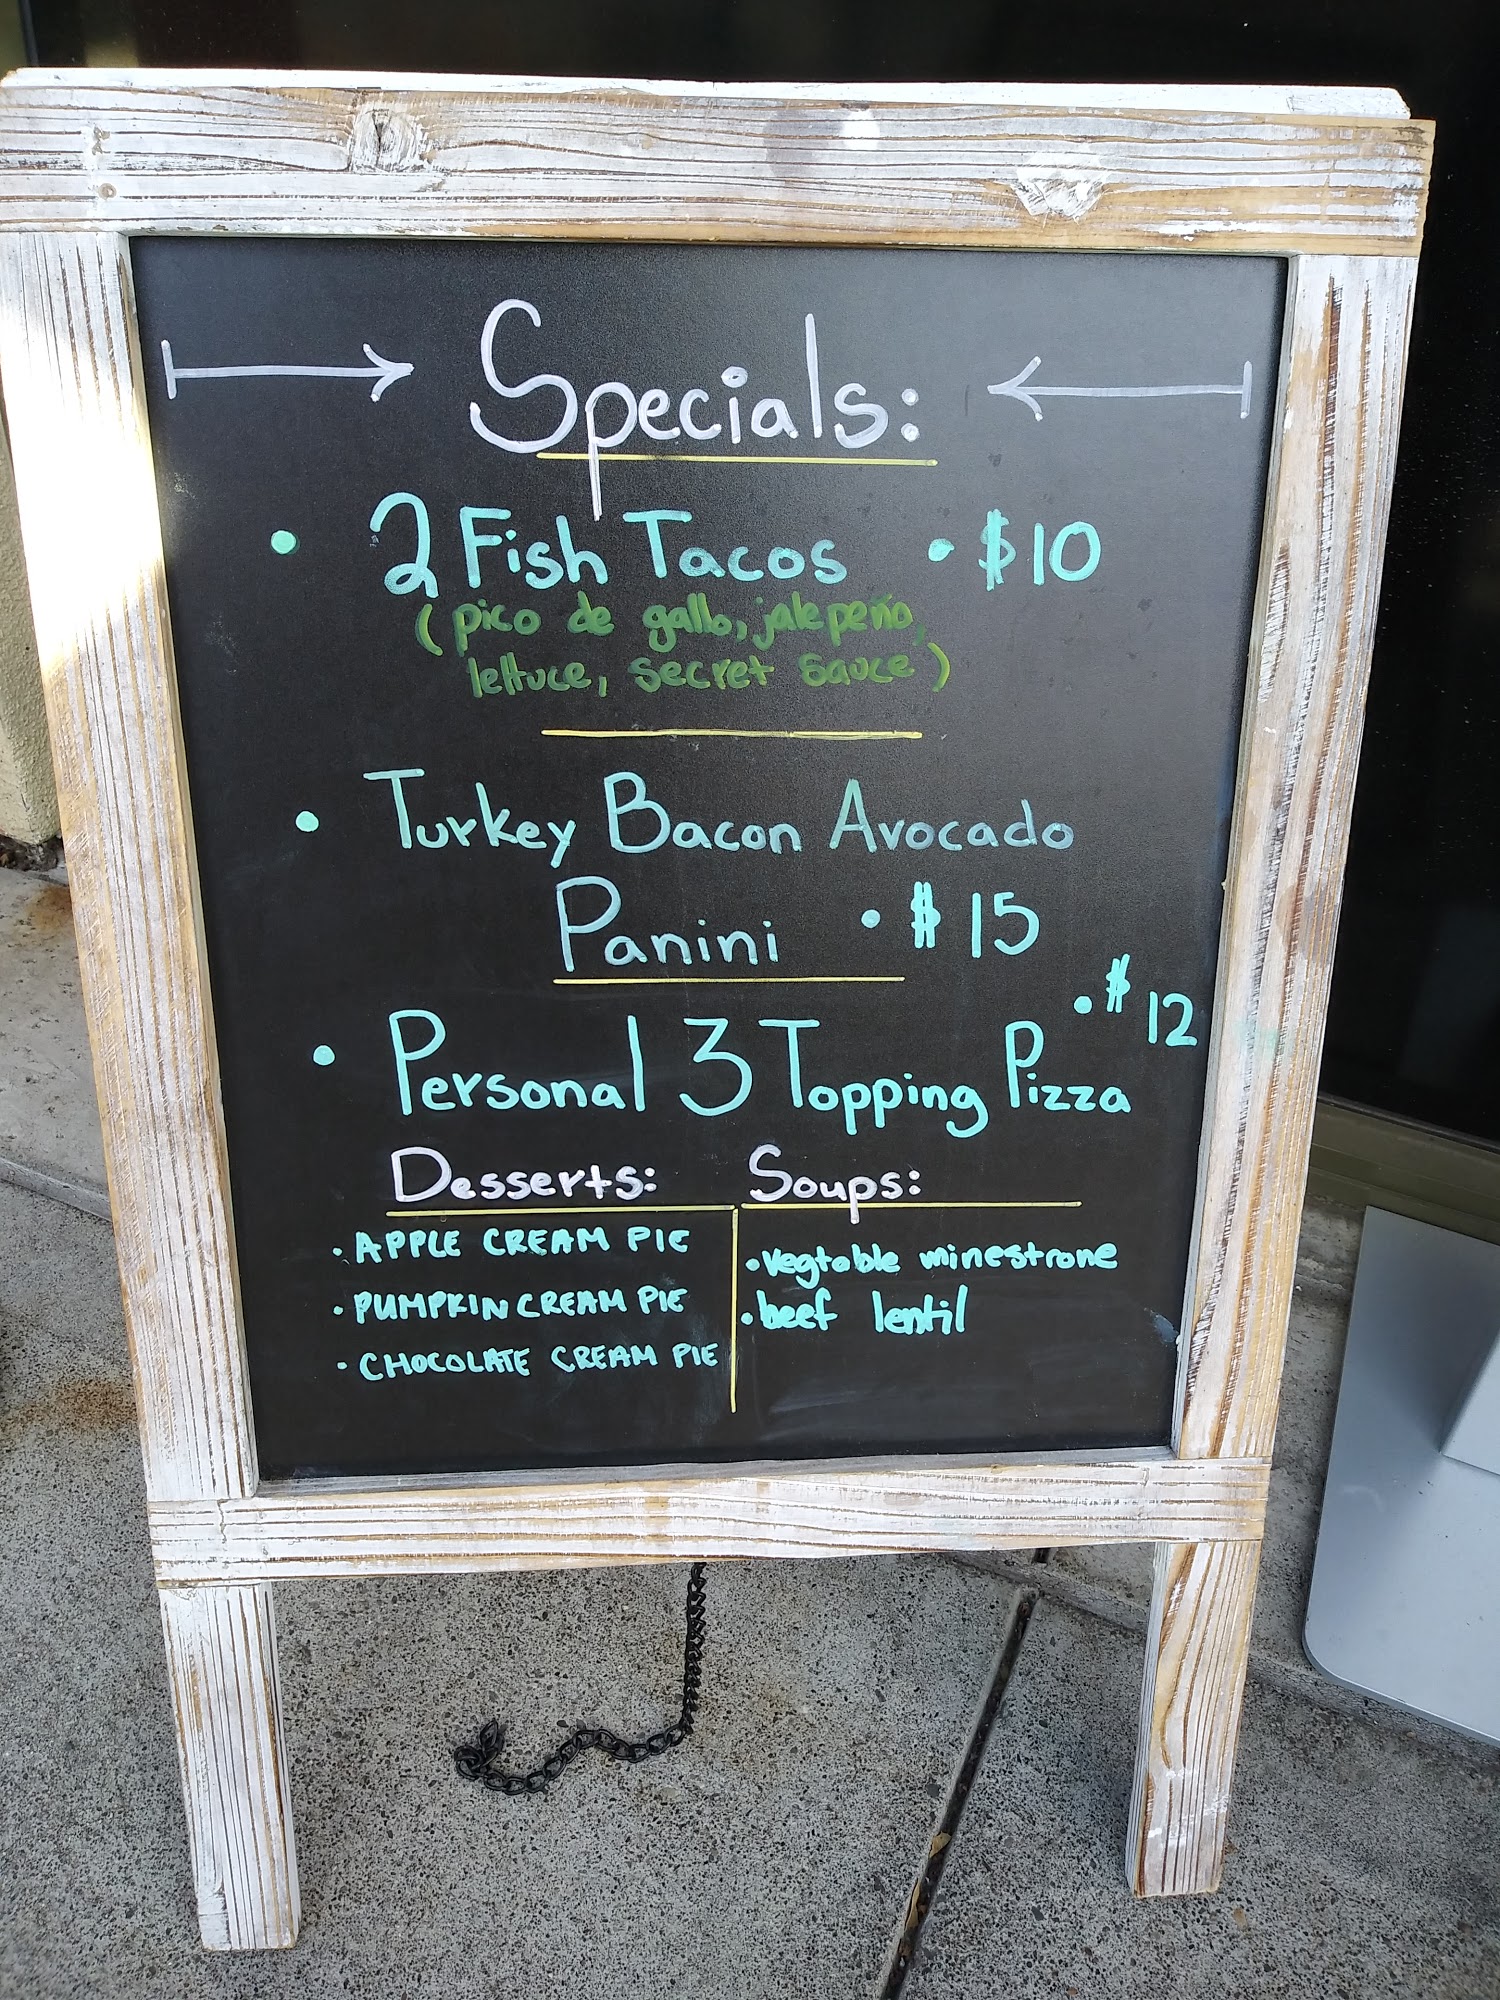 Specials:
• 2 Fish Tacos • $10
(pico de gallo, jalepeño,
lettuce, secret sauce)
• Turkey Bacon Avocado
Panini • $15
• Personal 3 Topping Pizza • $12
Desserts:
• APPLE CREAM PIE
• PUMPKIN CREAM PIE
• CHOCOLATE CREAM PIE
Soups:
• vegtable minestrone
• beef lentil